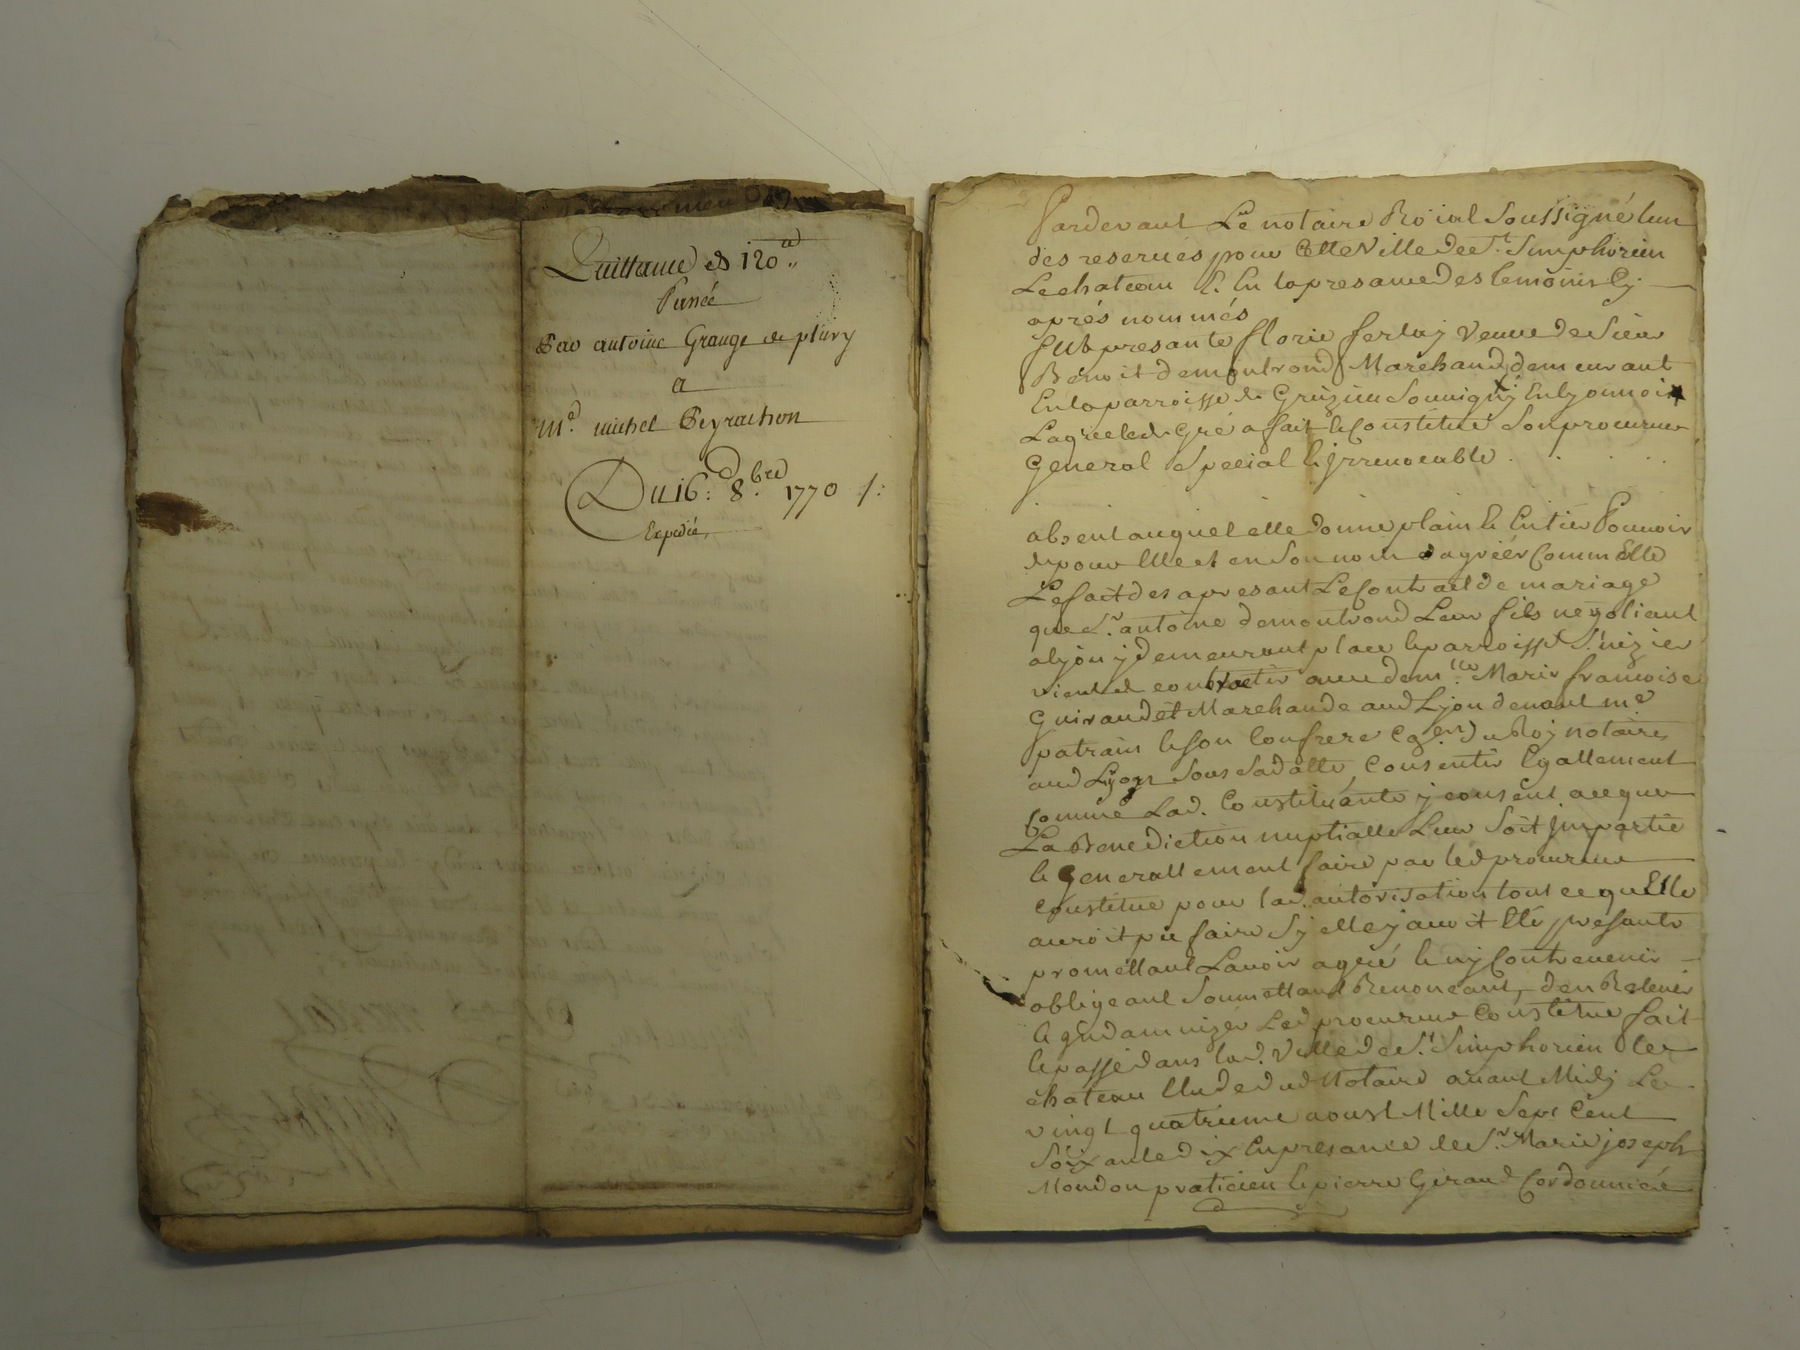 Quittance de 120ᵗᵗ
Passée
Par antoine Grange de pluvy
a
Mᵉ. michel Peyrachon
Du 16: 8.bre 1770 /:
Expédié
Pardevant Le notaire Roïal Soussigné lun
des reservés pour Cette Ville de St. Simphorien
Le chateau & En la presance des temoins Cy
aprés nommés
fut presante florie ferlay veuve de Sieur
Benoit demontrond Marchand demeurant
En la parroisse de Grezieu Souvigny En Lyonnois
Laquelle de Gré a fait & Constitué Son procureur
General Special & Jrrevocable . . . .
absent auquel elle donne plain & Entier Pouvoir
de pour Elle et en Son nom dagréér Comm Elle
Le fait des apresant Le Contract de mariage
que Sr. antoine demontrond Leur fils negotiant
a lyon ÿ demeurant place & parroisse St. nizier
vient de contracter avec demlle. Marie francoise
Guiraudét Marchande aud Lyon devant me
patrain & Son Confrere Cgers du Roj notaires
aud Lyon Sous Sa datte, Consentir Egallement
Comme Lad. Constituante ÿ consent aceque
La Benediction nuptialle Leur Soit Jmpartie
& Generallement faire par led procureur
Constitué pour lad. autorisation tout ce quElle
auroit pu faire Sy elle y avoit Eté presante
promettant Lavoir agréé & nÿ Contrevenir
obligeant Soumettant Renoncant, den Relever
& Jndamnizer Led procureur Constitué fait
& passé dans lad. Ville de St. Simphorien le
chateau Etude dud Notaire avant Midy Le
vingt quatrieme aoust Mille Sept Cent
Soixante dix En presance de Sr. Marie joseph
Mondon praticien & pierre Giraud Cordonnier